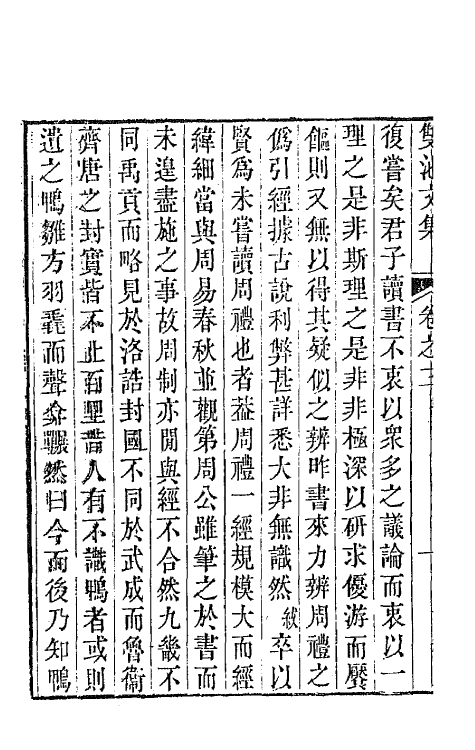 雙池文集 卷之三
復嘗矣君子讀書不衷以衆多之議論而衷以一
理之是非斯理之是非非極深以研求優游而饜
飫則又無以得其疑似之辨昨書來力辨周禮之
僞引經據古說利弊甚詳悉大非無識然紱卒以
賢爲未嘗讀周禮也者葢周禮一經規模大而經
緯細當與周易春秋並觀第周公雖筆之於書而
未遑盡施之事故周制亦閒與經不合然九畿不
同禹貢而略見於洛誥封國不同於武成而魯衞
齊唐之封實皆不止百里昔人有不識鴨者或則
遺之鴨雛方羽毳而聲 然曰今而後乃知鴨